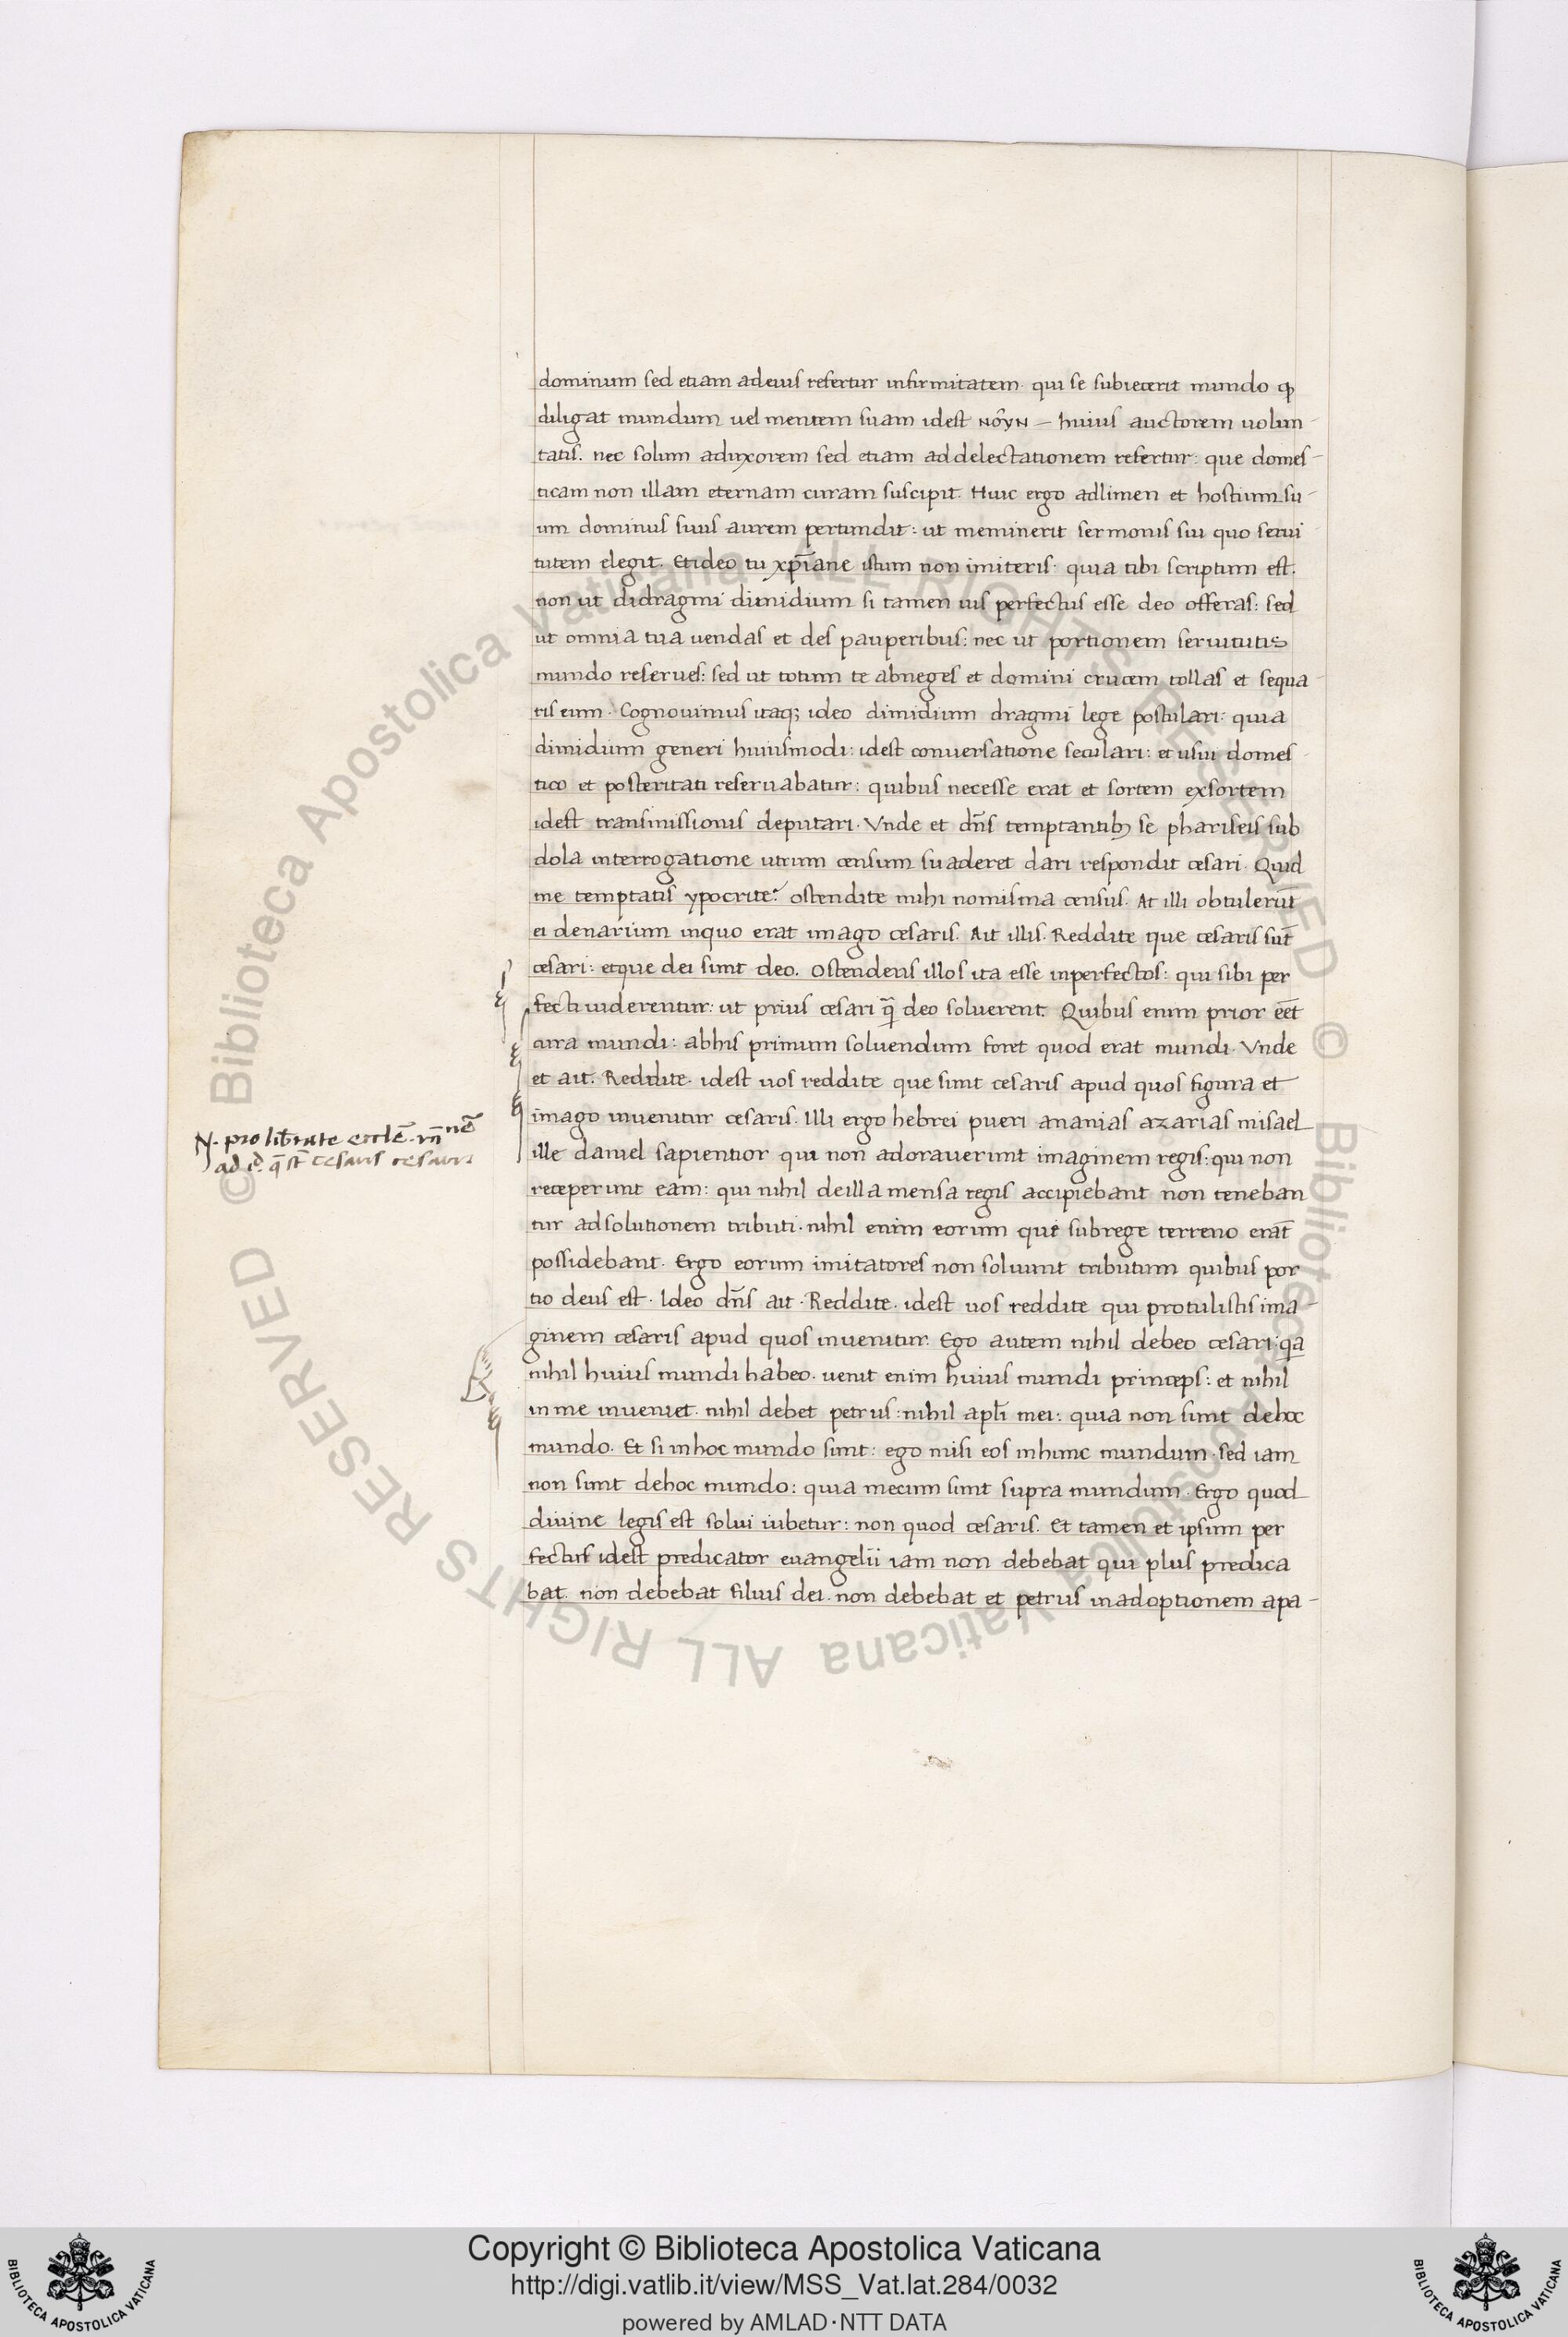 dominum sed etiam adeius refertur infirmitatem· qui se subiecerit mundo ꝙ
diligat mundum uel mentem suam idest NOYN — huius auctorem uolun-
tatis. nec solum aduxorem sed etiam addelectationem refertur: que domes-
ticam non illam eternam curam suscipit. Huic ergo adlimen et hostium su-
um dominus suus aurem pertundit: ut meminerit sermonis sui quo serui
tutem elegit. Etideo tu xp̄iane istum non imiteris: quia tibi scriptum est.
non ut didragmi dimidium si tamen uis perfectus esse deo offeras: sed
ut omnia tua uendas et des pauperibus: nec ut portionem seruitutis
mundo reserues: sed ut totum te abneges et domini crucem tollas et sequa-
ris eum· Cognouimus itaq; ideo dimidium dragmi lege postulari: quia
dimidium generi huiusmodi: idest conuersatione seculari: et usui domes-
tico et posteritati reseruabatur: quibus necesse erat et sortem exsortem
idest transmissionis deputari· Vnde et dn̄s temptantibꝫ se phariseis sub
dola interrogatione utrum censum suaderet dari respondit cesari· Quid
me temptatis ypocrite? ostendite mihi nomisma census. At illi obtulerūt
ei denarium inquo erat imago cesaris. Ait illis. Reddite que cesaris sūt
cesari: etque dei sunt deo. Ostendens illos ita esse inperfectos: qui sibi per
fecti uiderentur: ut prius cesari q̄ deo soluerent. Quibus enim prior eēt
cura mundi: abhis primum soluendum foret quod erat mundi· Vnde
et ait. Reddite· idest uos reddite que sunt cesaris apud quos figura et
imago inuenitur cesaris. Illi ergo hebrei pueri ananias azarias misael
N. pro lib̄tate eccl̄e
ad id q̄ sūt cesaris cesari
ille daniel sapientior qui non adorauerunt imaginem regis: qui non
receperunt eam: qui nihil deilla mensa regis accipiebant non teneban
tur adsolutionem tributi· nihil enim eorum que subrege terreno erāt
possidebant· Ergo eorum imitatores non soluunt tributum quibus por
tio deus est· Ideo dn̄s ait· Reddite· idest uos reddite qui protulistis ima-
ginem cesaris apud quos inuenitur. Ego autem nihil debeo cesari: qa
nihil huius mundi habeo. uenit enim huius mundi princeps: et nihil
in me inueniet. nihil debet petrus: nihil apl̄i mei: quia non sunt dehoc
mundo. Et si inhoc mundo sunt: ego misi eos inhunc mundum· sed iam
non sunt dehoc mundo: quia mecum sunt supra mundum· Ergo quod
diuine legis est solui iubetur: non quod cesaris. Et tamen et ipsum per
fectus idest predicator euangelii iam non debebat qui plus predica
bat. non debebat filius dei. non debebat et petrus inadoptionem apa-
© Biblioteca Apostolica Vaticana ALL RIGHTS RESERVED © Biblioteca Apostolica Vaticana ALL RIGHTS RESERVED
Copyright © Biblioteca Apostolica Vaticana
http://digi.vatlib.it/view/MSS_Vat.lat.284/0032
powered by AMLAD·NTT DATA
BIBLIOTECA APOSTOLICA VATICANA
BIBLIOTECA APOSTOLICA VATICANA